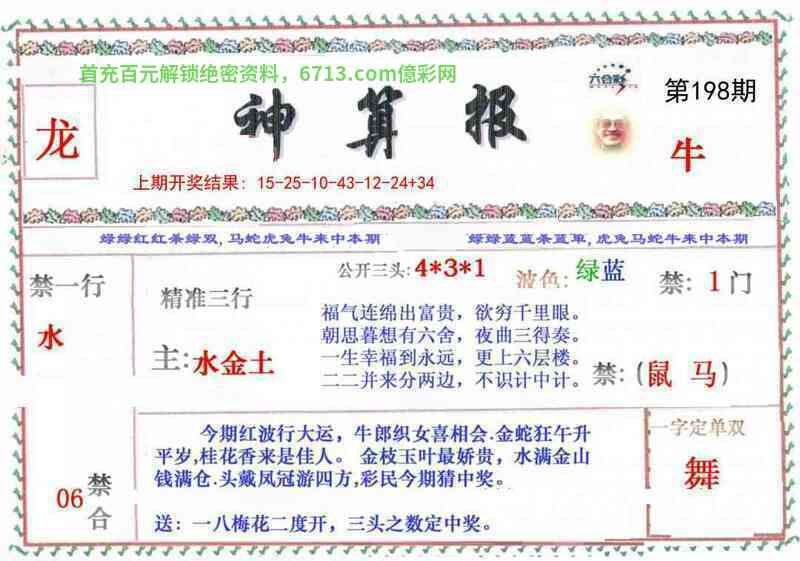 首充百元解锁绝密资料，6713.com億彩网
六合彩
第198期
龙
神算报
牛
上期开奖结果: 15-25-10-43-12-24+34
绿绿红红杀绿双, 马蛇虎兔牛来中本期
绿绿蓝蓝杀蓝单, 虎兔马蛇牛来中本期
禁一行
水
精准三行
主:水金土
公开三头: 4*3*1
波色: 绿蓝
禁: 1门
福气连绵出富贵，欲穷千里眼。
朝思暮想有六舍，夜曲三得奏。
一生幸福到永远，更上六层楼。
二二并来分两边，不识计中计。
禁: (鼠 马)
06
禁合
今期红波行大运，牛郎织女喜相会.金蛇狂午升
平岁,桂花香来是佳人。 金枝玉叶最娇贵，水满金山
钱满仓.头戴凤冠游四方,彩民今期猜中奖。
送：一八梅花二度开，三头之数定中奖。
一字定单双
舞